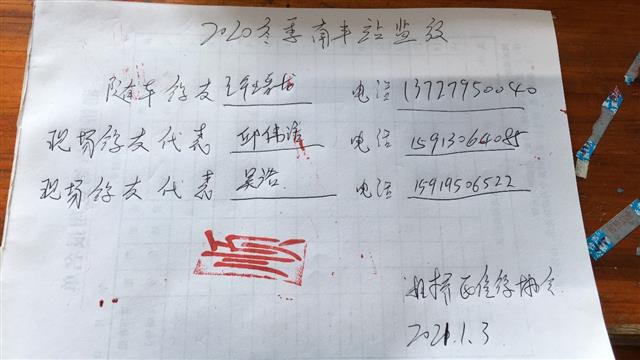 2020冬季南丰站监放
随车鸽友 电话 13727950040
现场鸽友代表 邱伟浩 电话 15913064085
现场鸽友代表 吴浩 电话 15919506522
顺
信鸽协会
2021.1.3